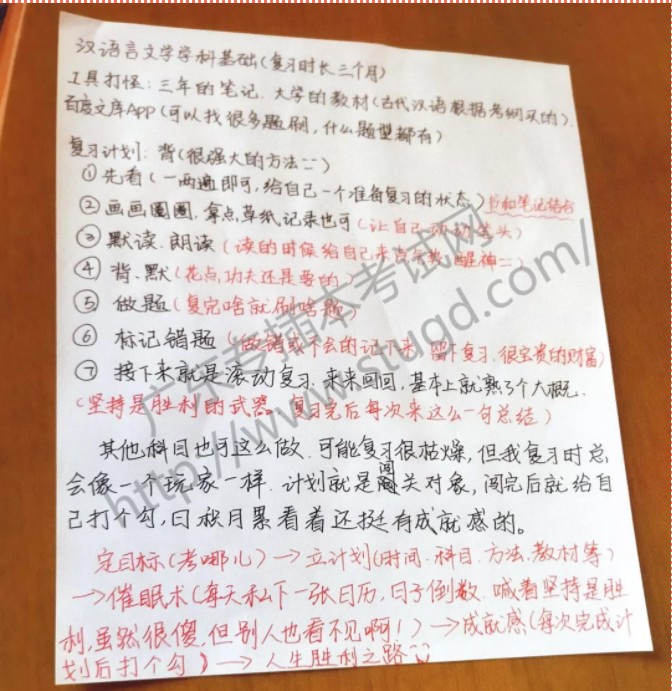 汉语言文学学科基础(复习时长三个月)
工具打怪:三年的笔记、大学的教材(古代汉语根据考纲买的).
百度文库App(可以找很多题刷,什么题型都有)
复习计划:背(很强大的方法二)
①先看(一两遍即可,给自己一个准备复习的状态)书和笔记结合
②画画圈圈,拿点草纸记录也可(让自己动动笔头)
③默读.朗读(读的时候给自己来点字数,醒神二)
④背.默(花点功夫还是要的)
⑤做题(复完啥就刷啥题)
⑥标记错题(做错或不会的记下来,留下复习.很宝贵的财富)
⑦接下来就是滚动复习.来来回回,基本上就熟了个大概.
(坚持是胜利的武器。复习完后每次来这么一句总结)
其他科目也可这么做.可能复习很枯燥,但我复习时总
会像一个玩家一样.计划就是闯关对象,闯完后就给自
己打个勾,日积月累看着还挺有成就感的。
定目标(考哪儿)→立计划(时间.科目.方法.教材等)
→催眠术(每天私下一张日历,日子倒数.喊着坚持是胜
利,虽然很傻,但别人也看不见啊!)→成就感(每次完成计
划后打个勾)→人生胜利之路
广东专插本考试网
http://www.stugd.com/